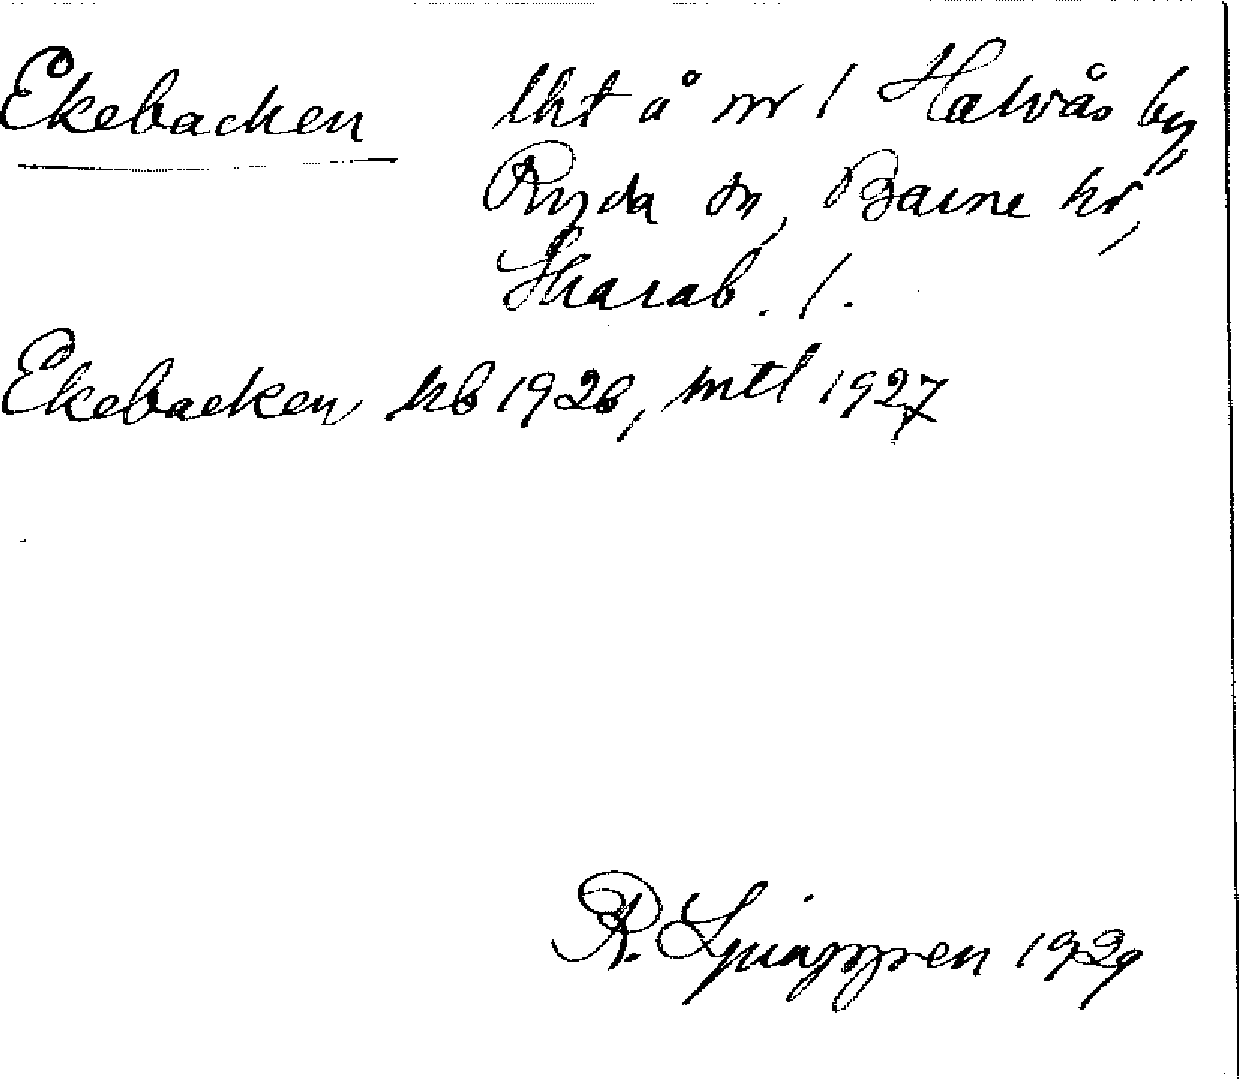 Ekebacken lht å nr 1 Halvås by,
Ryda sn, Barne hr,
Skarab. l.
Ekebacken kb 1926, mtl 1927
R. Ljunggren 1929